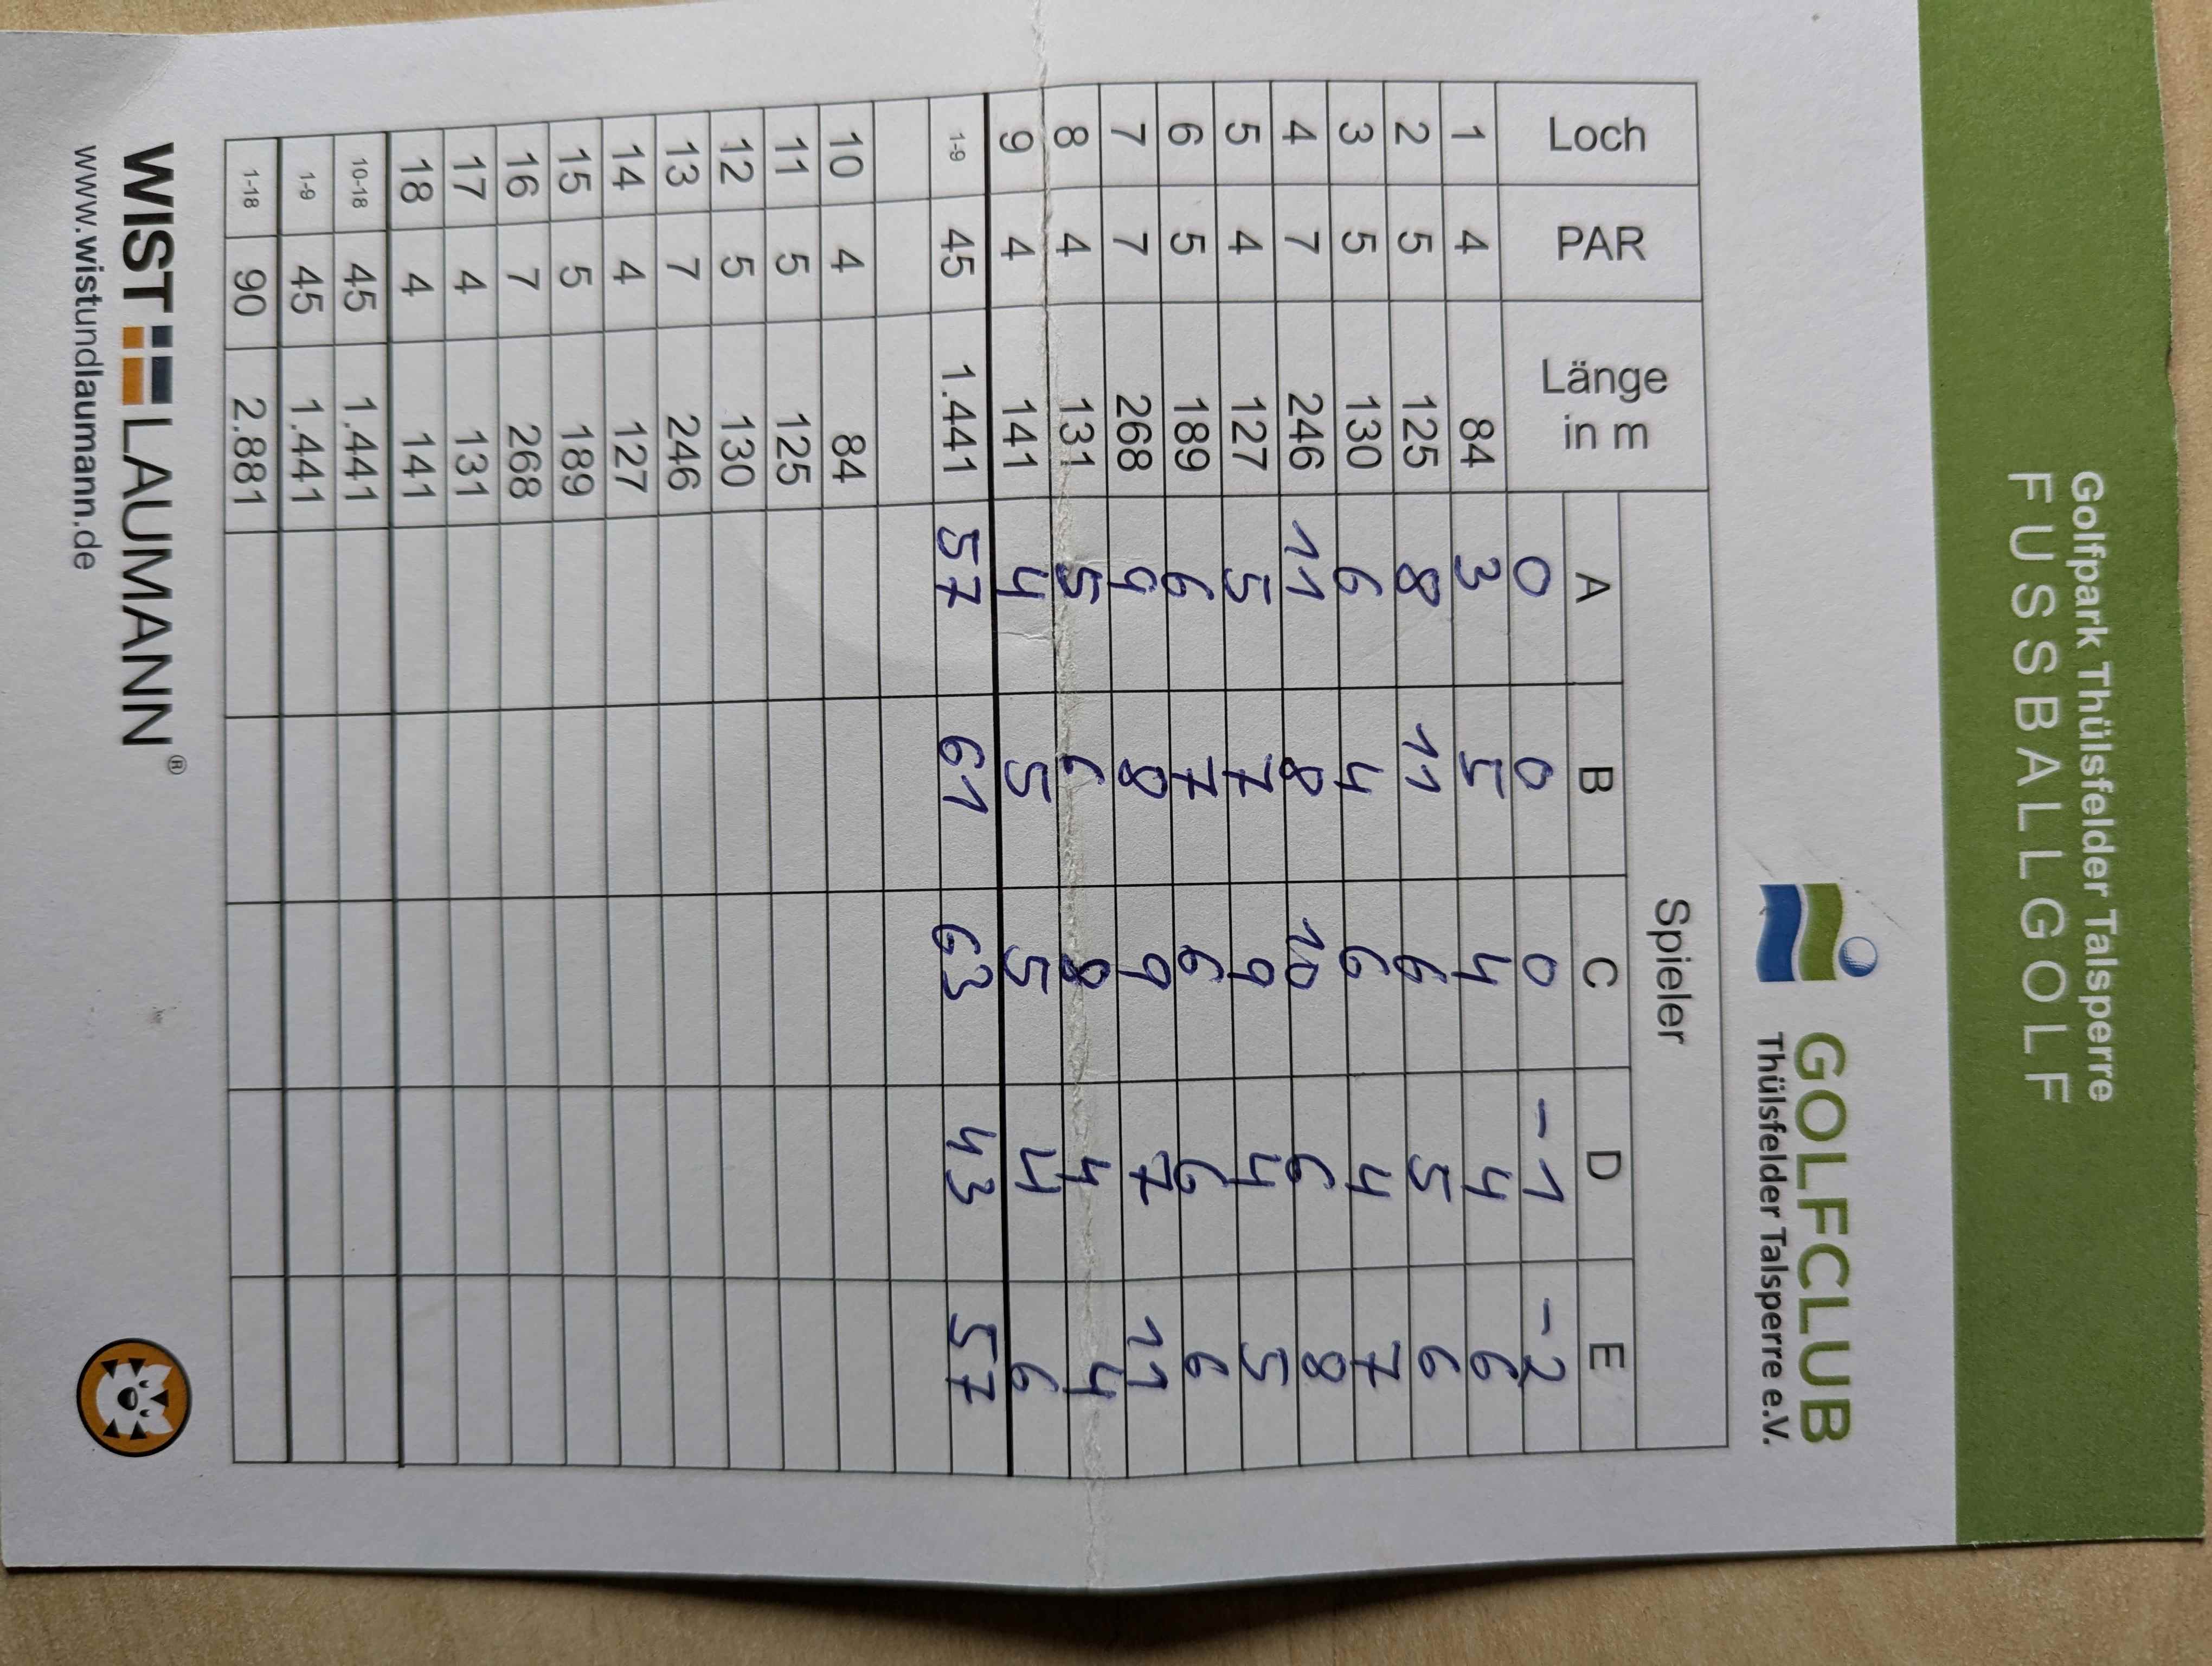 Golfpark Thülsfelder Talsperre
FUSSBALLGOLF
GOLFCLUB
Thülsfelder Talsperre e.V.
Loch PAR Länge in m Spieler
A B C D E
0 0 0 -1 -2
1 4 84 3 5 4 4 6
2 5 125 8 11 6 5 6
3 5 130 6 4 6 4 7
4 7 246 11 8 10 6 8
5 4 127 5 7 9 4 5
6 5 189 6 7 6 6 6
7 7 268 9 8 9 7 11
8 4 131 5 6 8 4 4
9 4 141 4 5 5 4 6
1-9 45 1.441 57 61 63 43 57
10 4 84
11 5 125
12 5 130
13 7 246
14 4 127
15 5 189
16 7 268
17 4 131
18 4 141
10-18 45 1.441
1-9 45 1.441
1-18 90 2.881
WIST LAUMANN®
www.wistundlaumann.de